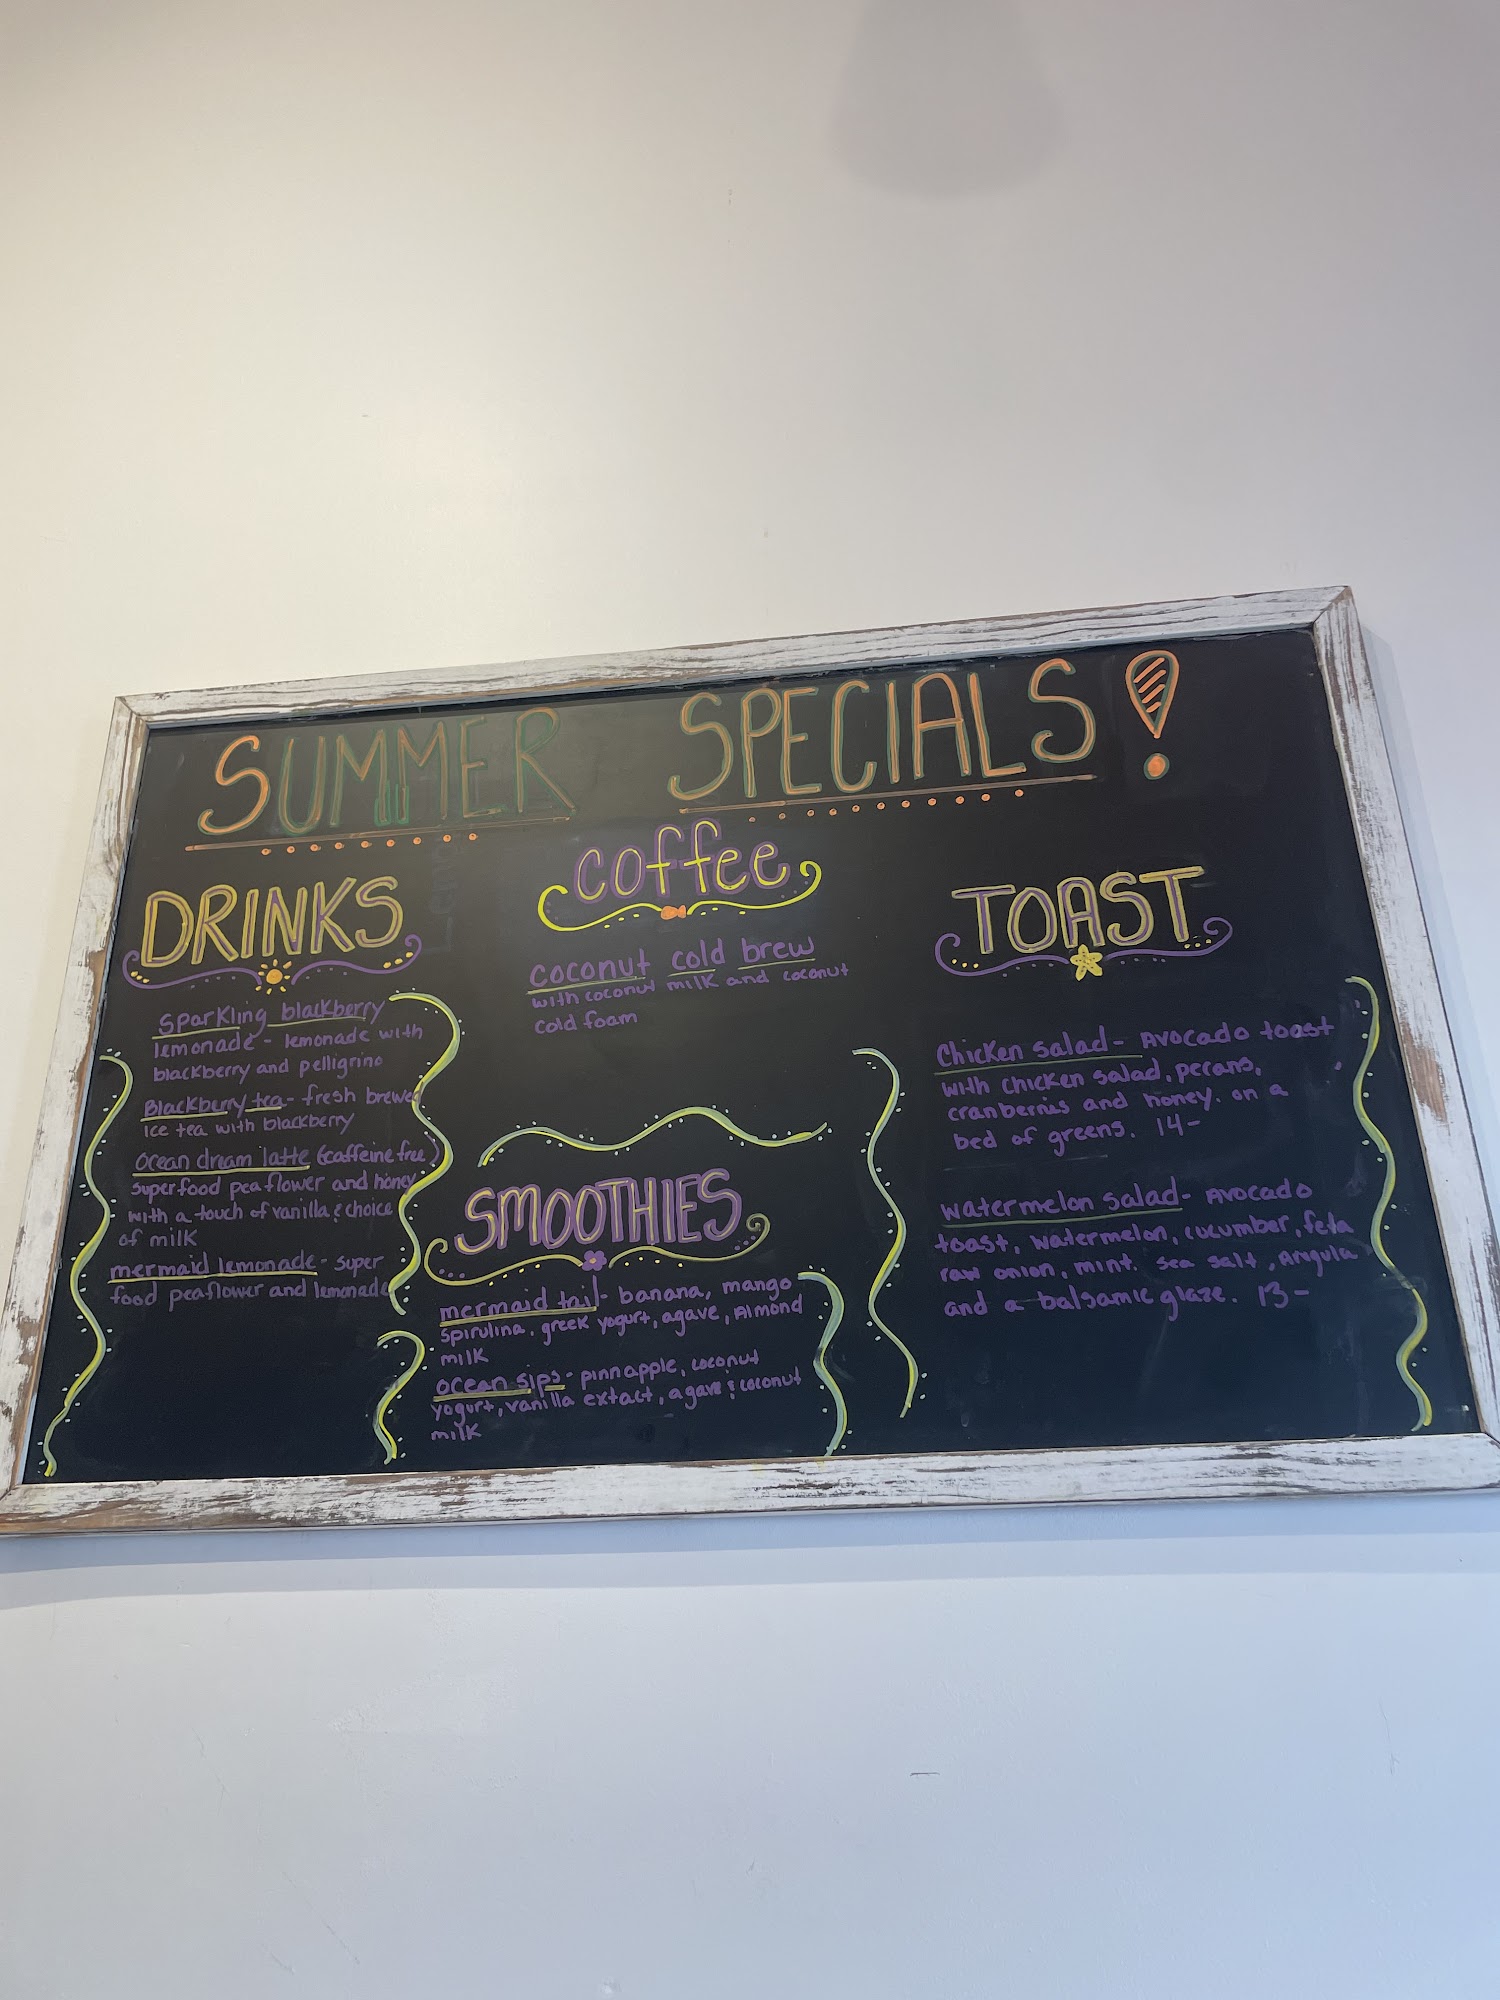 SUMMER SPECIALS!
DRINKS
sparkling blackberry
lemonade - lemonade with
blackberry and pelligrino
Blackberry tea - fresh brewed
ice tea with blackberry
ocean dream latte (caffeine free)
superfood pea flower and honey
with a touch of vanilla & choice
of milk
mermaid lemonade - super
food peaflower and lemonade
coffee
coconut cold brew
with coconut milk and coconut
cold foam
SMOOTHIES
mermaid tail - banana, mango
spirulina, greek yogurt, agave, Almond
milk
ocean sips - pinnapple, coconut
yogurt, vanilla extact, agave & coconut
milk
TOAST
Chicken salad - Avocado toast
with chicken salad, pecans,
cranberries and honey. on a
bed of greens. 14-
watermelon salad - Avocado
toast, watermelon, cucumber, feta
raw onion, mint, sea salt, Arugula
and a balsamic glaze. 13-